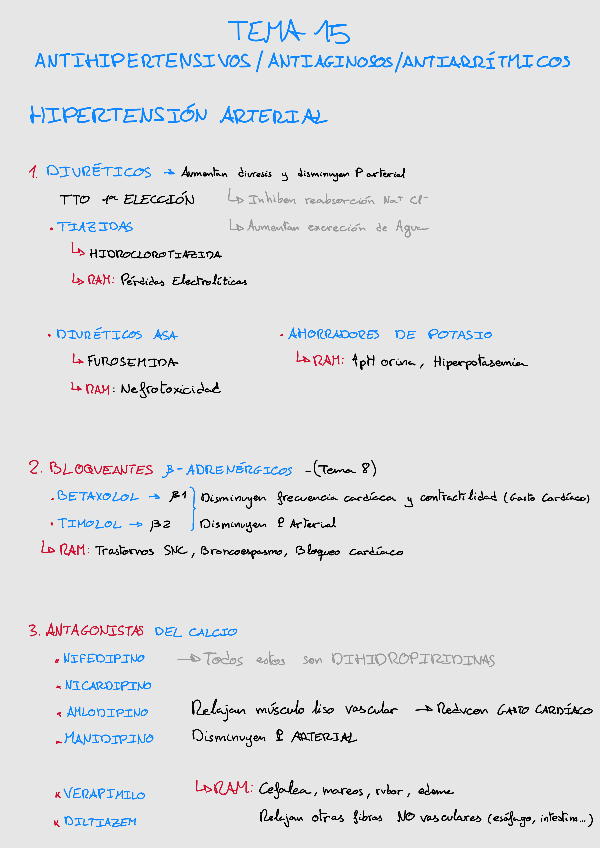 TEMA 15
ANTIHIPERTENSIVOS / ANTIAGINOSOS / ANTIARRÍTMICOS
HIPERTENSIÓN ARTERIAL
1. DIURÉTICOS → Aumentan diuresis y disminuyen P arterial
TTO 1ª ELECCIÓN ↳ Inhiben reabsorción Na⁺ Cl⁻
· TIAZIDAS ↳ Aumentan excreción de Agua
↳ HIDROCLOROTIAZIDA
↳ RAM: Pérdidas Electrolíticas
· DIURÉTICOS ASA
↳ FUROSEMIDA
↳ RAM: Nefrotoxicidad
· AHORRADORES DE POTASIO
↳ RAM: ↑pH orina, Hiperpotasemia
2. BLOQUEANTES β-ADRENÉRGICOS - (Tema 8)
· BETAXOLOL → β1 Disminuyen frecuencia cardíaca y contractilidad (Gasto Cardíaco)
· TIMOLOL → β2 Disminuyen P Arterial
↳ RAM: Trastornos SNC, Broncoespasmo, Bloqueo cardíaco
3. ANTAGONISTAS DEL CALCIO
· NIFEDIPINO → Todos estos son DIHIDROPIRIDINAS
· NICARDIPINO
· AMLODIPINO Relajan músculo liso vascular → Reducen GASTO CARDÍACO
· MANIDIPINO Disminuyen P ARTERIAL
× VERAPIMILO ↳ RAM: Cefalea, mareos, rubor, edema
× DILTIAZEM Relajan otras fibras NO vasculares (esófago, intestin...)